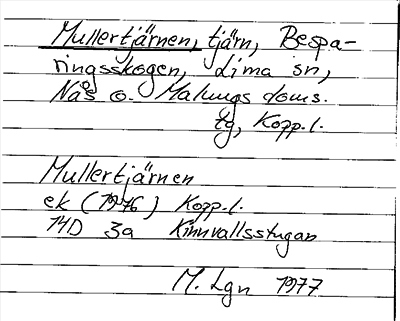 Mullertjärnen, tjärn, Bespa-
ringsskogen, Lima sn,
Nås o. Malungs doms.
tg, Kopp.l.
Mullertjärnen
ek (1976) Kopp.l.
14D 3a Kinnvallsstugan
M. Lgn 1977